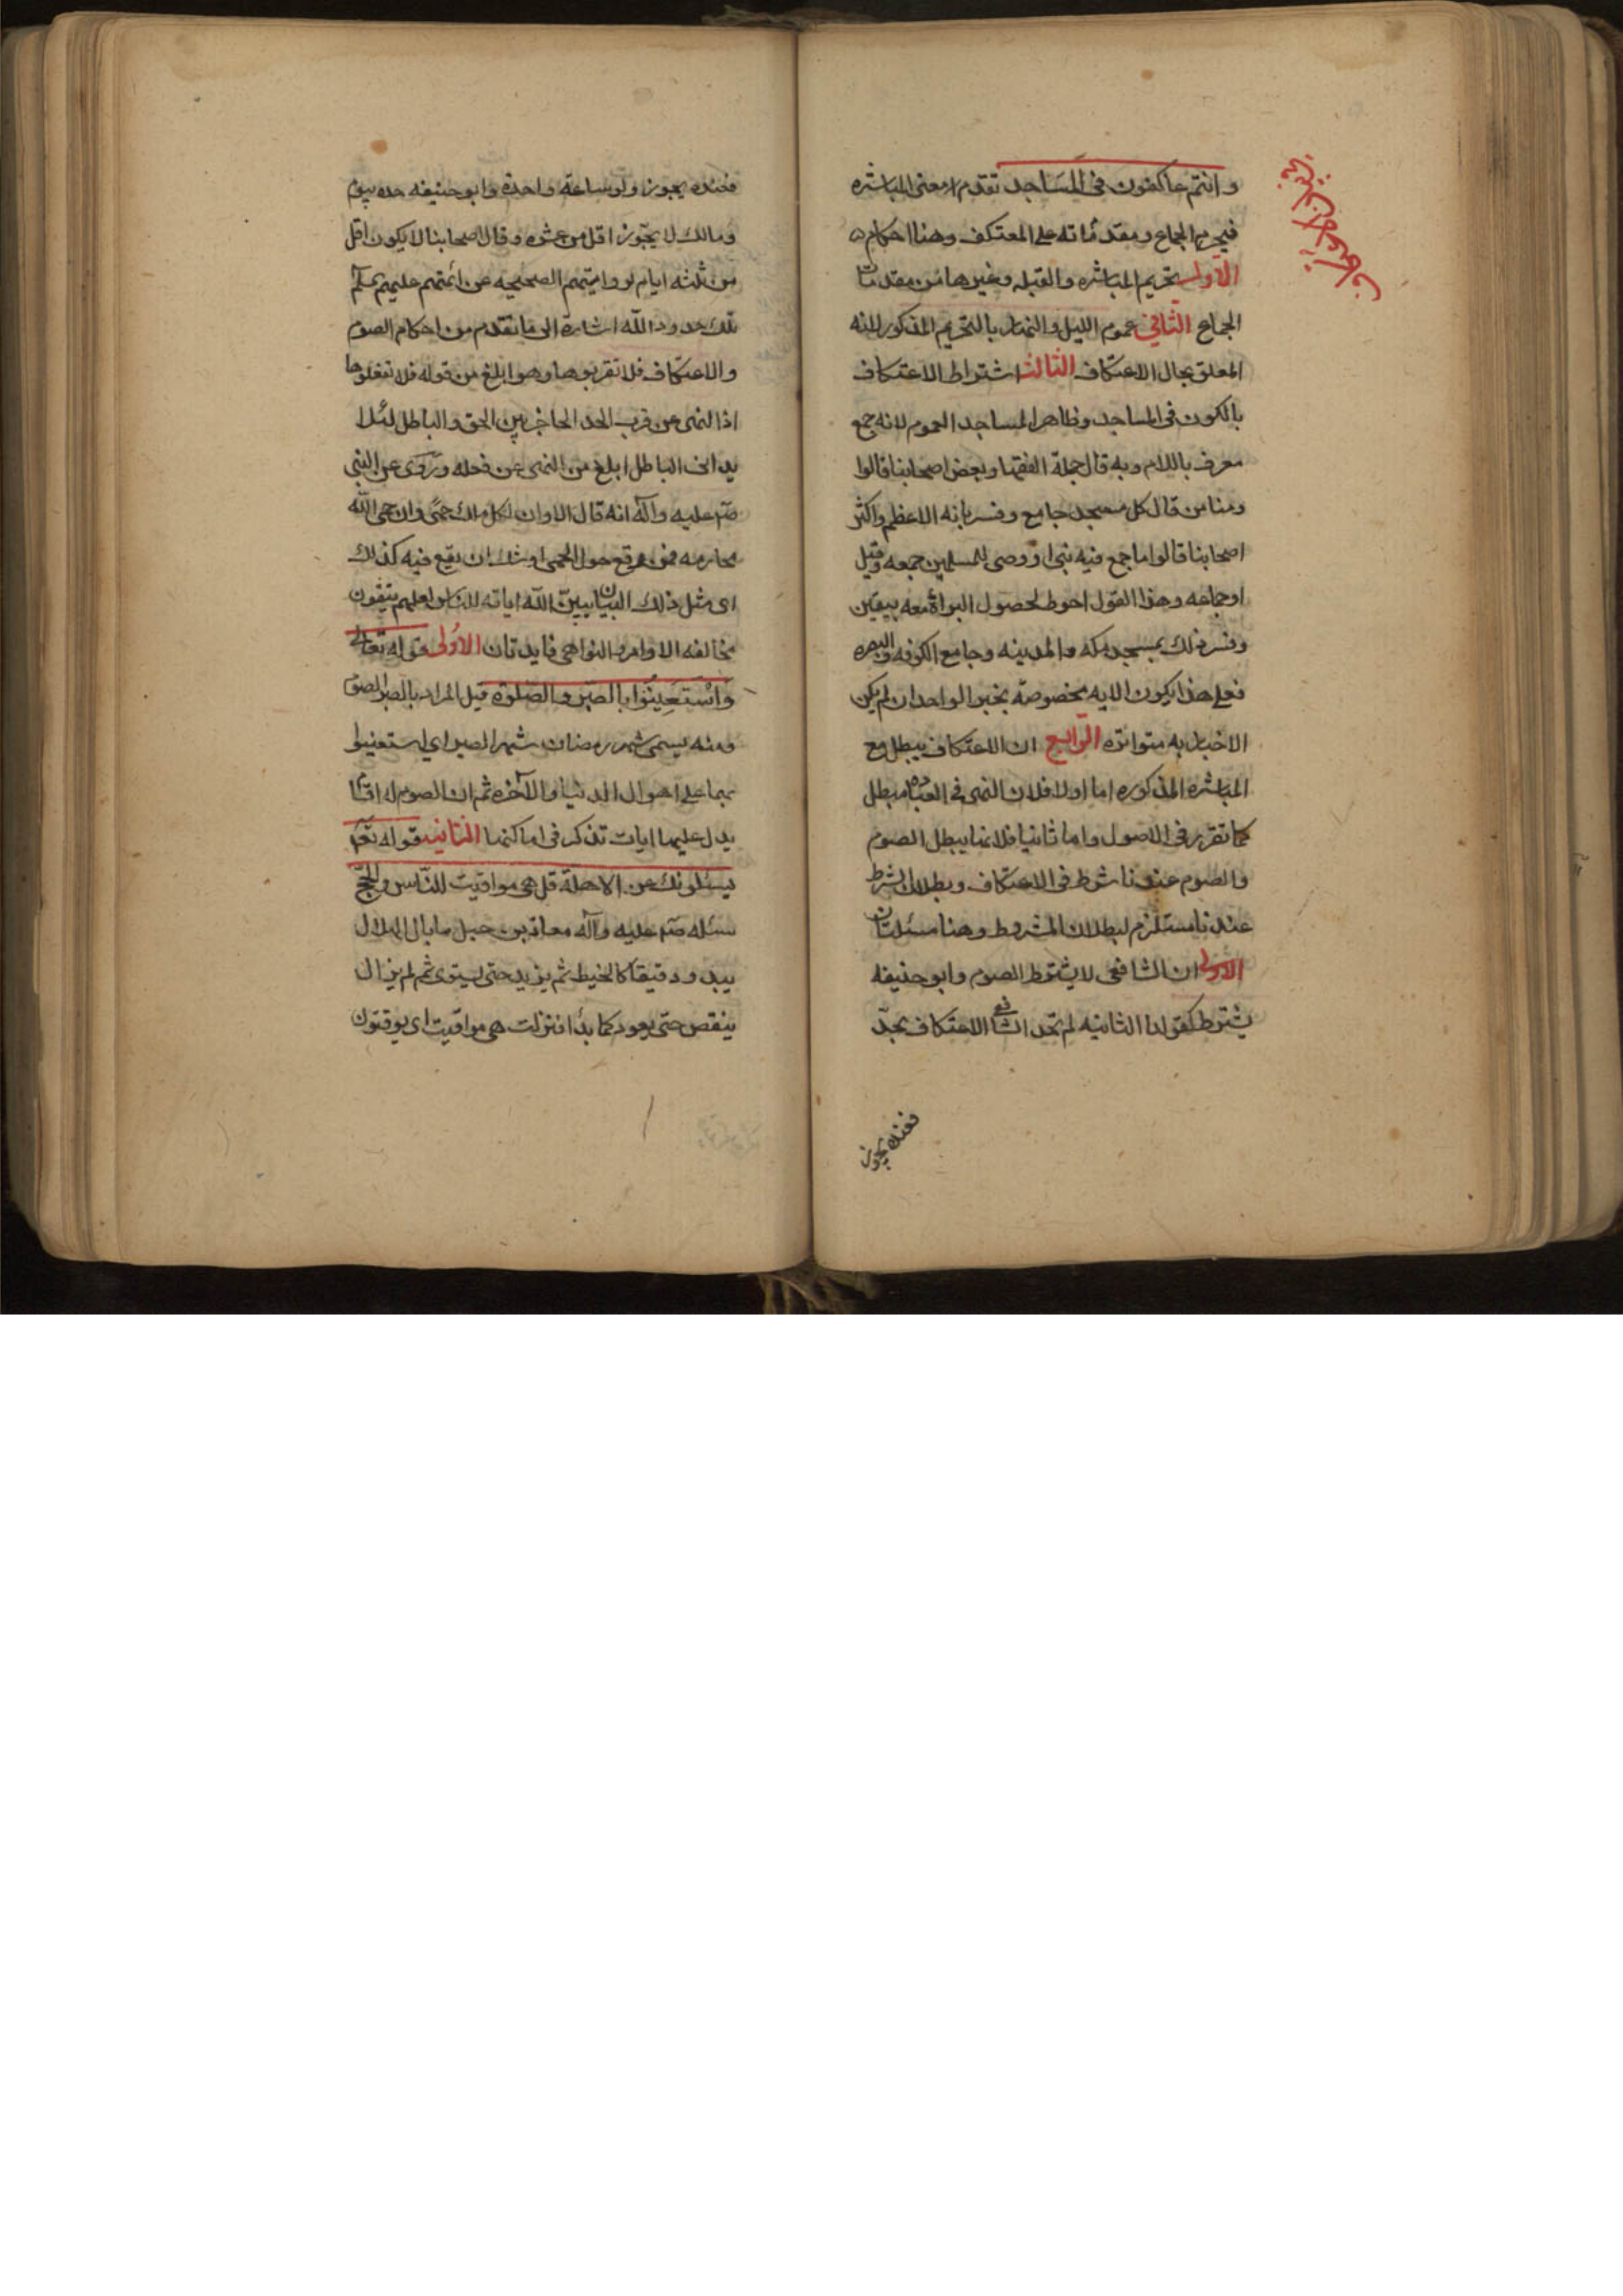 وانتم عاكفون فى المساجد تقدم معنى المباشره
فيحرم الجماع ومقدماته على المعتكف وهنا احكام
الاول تحريم المباشره والقبله وغيرهما من مقدمات
الجماع الثانى عموم الليل والنهار بالتحريم المذكور لانه
المعلق بحال الاعتكاف الثالث اشتراط الاعتكاف
بالكون فى المساجد وظاهر المساجد العموم لانه جمع
معرف باللام وبه قال جملة الفقها وبعض اصحابنا قالوا
ومنا من قال كل مسجد جامع وفسر بانه الاعظم واكثر
اصحابنا قالوا ما جمع فيه نبى او وصى للمسلمين جمعه وقيل
او جماعه وهذا القول احوط لحصول البراة معه بيقين
وفسر ذلك بمسجد مكه والمدينه وجامع الكوفه والبصره
فعلى هذا يكون الايه مخصوصة بخبر الواحد ان لم يكن
الاخبار به متواتره الرابع ان الاعتكاف يبطل مع
المباشره المذكوره اما اولا فلان النهى فى العباده مبطل
كما تقرر فى الاصول واما ثانيا فلانها يبطل الصوم
والصوم عندنا شرط فى الاعتكاف وبطلان الشرط
عندنا مستلزم لبطلان المشروط وهنا مسئلتان
الاولى ان الشافعى لا يشترط الصوم وابو حنيفه
يشترط كقولنا الثانيه لم يحد الشافع الاعتكاف بحد
فعنده يجوز
فعنده يجوز ولو ساعة واحدة وابو حنيفه حده بيوم
ومالك لا يجوز اقل من عشره وقال اصحابنا لا يكون اقل
من ثلثه ايام لروايتهم الصحيحه عن ائمتهم عليهم السلم
تلك حدود الله اشارة الى ما تقدم من احكام الصوم
والاعتكاف فلا تقربوها وهو ابلغ من قوله فلا تفعلوها
اذ النهى عن قرب الحد الحاجز بين الحق والباطل لئلا
يدانى الباطل ابلغ من النهى عن فعله وروى عن النبى
صم عليه وآله انه قال الا وان لكل ملك حمى وان حمى الله
محارمه فمن وقع حول الحمى اوشك ان يقع فيه كذلك
اى مثل ذلك البيان يبين الله اياته للناس لعلهم يتقون
مخالفه الاوامر والنواهى فايدتان الاولى قوله تعالى
واستعينوا بالصبر والصلوة قيل المراد بالصبر الصوم
ومنه يسمى شهر رمضان شهر الصبر اى استعينوا
بهما على اهوال الدنيا والآخره ثم ان الصوم له اقسام
يدل عليها ايات تذكر فى اماكنها الثانيه قوله تعم
يسئلونك عن الاهلة قل هى مواقيت للناس والحج
سئله صم عليه وآله معاذ بن جبل ما بال الهلال
يبدو دقيقا كالخيط ثم يزيد حتى يستوى ثم لم يزال
ينقص حتى يعود كما بدأ فنزلت هى مواقيت اى يوقتون